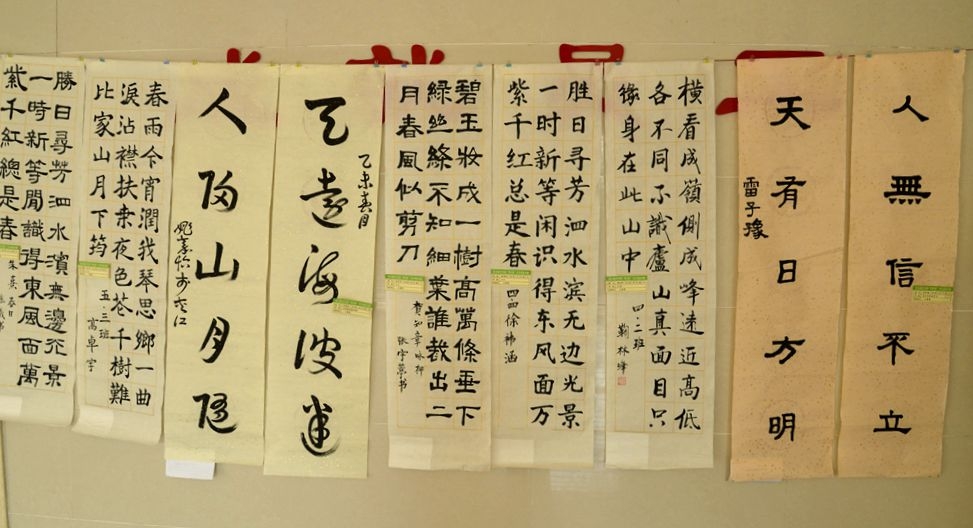 人無信不立
天有日方明
雷子豫
横看成嶺側成峰遠近高低
各不同不識廬山真面目只
缘身在此山中
四.二班
靳林峰
胜日寻芳泗水滨无边光景
一时新等闲识得东风面万
紫千红总是春
四.四徐祎涵
碧玉妝成一樹高萬條垂下
綠丝絛不知細葉誰裁出二
月春風似剪刀
賀知章咏柳
遠海波
乙未春月
人 山月
春雨今宵潤我琴思鄉一曲
淚沾襟扶桑夜色苍千樹難
比家山月下筠
五.三班
高卓宇
勝日尋芳泗水濱無邊光景
一時新等閒識得東風面萬
紫千紅總是春
朱熹春日